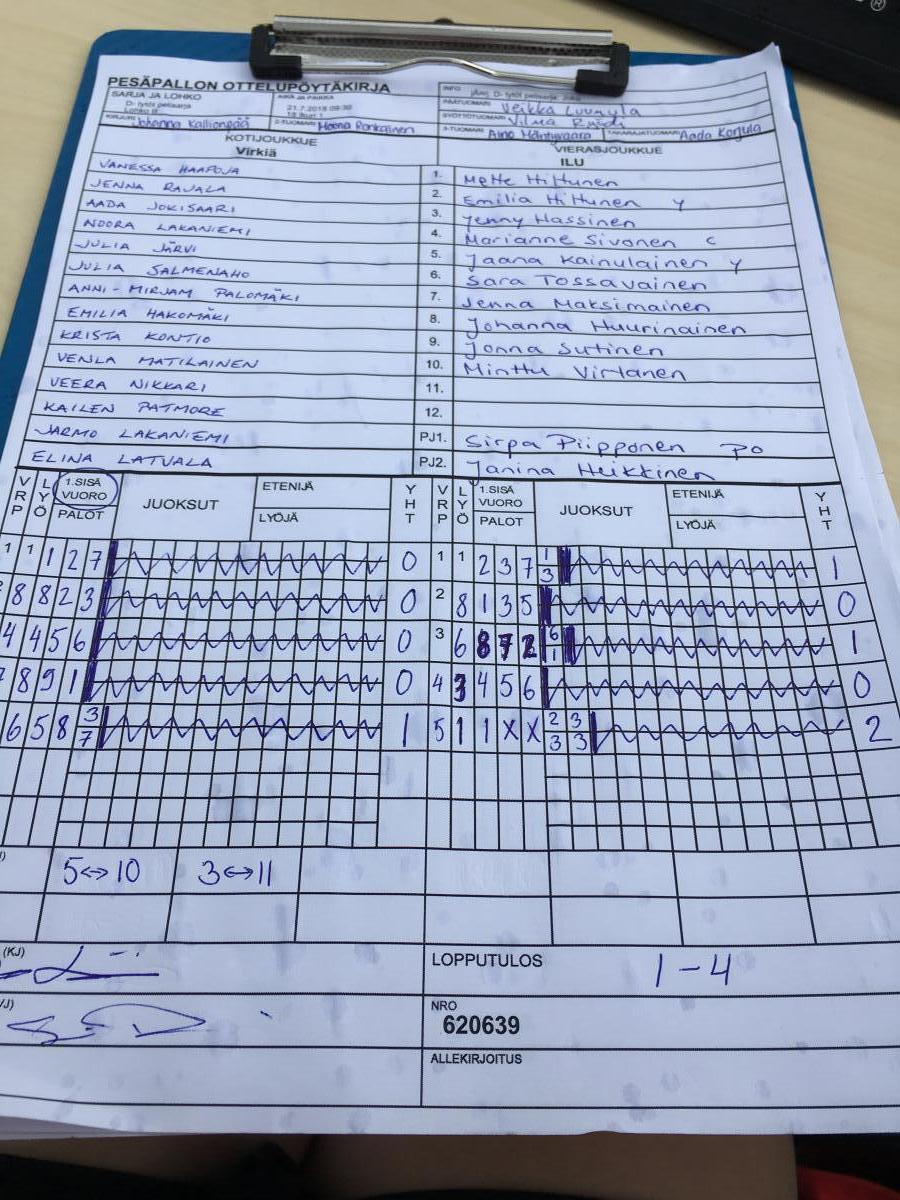 ®
PESÄPALLON OTTELUPÖYTÄKIRJA
SARJA JA LOHKO
D-tytöt pelisarja
AIKA JA PAIKKA
21.7.2018 09:30
INFO
PÄÄTUOMARI Veikka
SYÖTTÖTUOMARI Vilma
KIRJURI Johanna Kallionpää
2-TUOMARI Meena Ronkainen
3-TUOMARI Aino Mäntyvaara
TAKARAJATUOMARI Aada Korjula
KOTIJOUKKUE
Virkiä
VIERASJOUKKUE
ILU
VANESSA HAAPOJA 1. Mette Hiltunen
JENNA RAJALA 2. Emilia Hiltunen Y
AADA JOKISAARI 3. Jenny Hassinen
NOORA LAKANIEMI 4. Marianne Sivonen C
JULIA JÄRVI 5. Jaana Kainulainen Y
JULIA SALMENAHO 6. Sara Tossavainen
ANNI-MIRJAM PALOMÄKI 7. Jenna Maksimainen
EMILIA HAKOMÄKI 8. Johanna Huurinainen
KRISTA KONTIO 9. Jonna Sutinen
VENLA MATILAINEN 10. Minttu Virtanen
VEERA NIKKARI 11.
KAILEN PATMORE 12.
JARMO LAKANIEMI PJ1. Sirpa Piipponen PO
ELINA LATVALA PJ2. Janina Heikkinen
VRP LYÖ 1.SISÄ VUORO PALOT JUOKSUT ETENIJÄ LYÖJÄ YHT VRP LYÖ 1.SISÄ VUORO PALOT JUOKSUT ETENIJÄ LYÖJÄ YHT
1 1 1 2 7 0 1 1 2 3 7 1 3 1
8 8 2 3 0 2 8 1 3 5 0
4 4 5 6 0 3 6 8 7 2 6 1 1
8 9 1 0 4 3 4 5 6 0
6 5 8 3 7 1 5 1 1 X X 2 3 3 3 2
5<->10 3<->11
(KJ)
LOPPUTULOS 1-4
VJ)
NRO
620639
ALLEKIRJOITUS